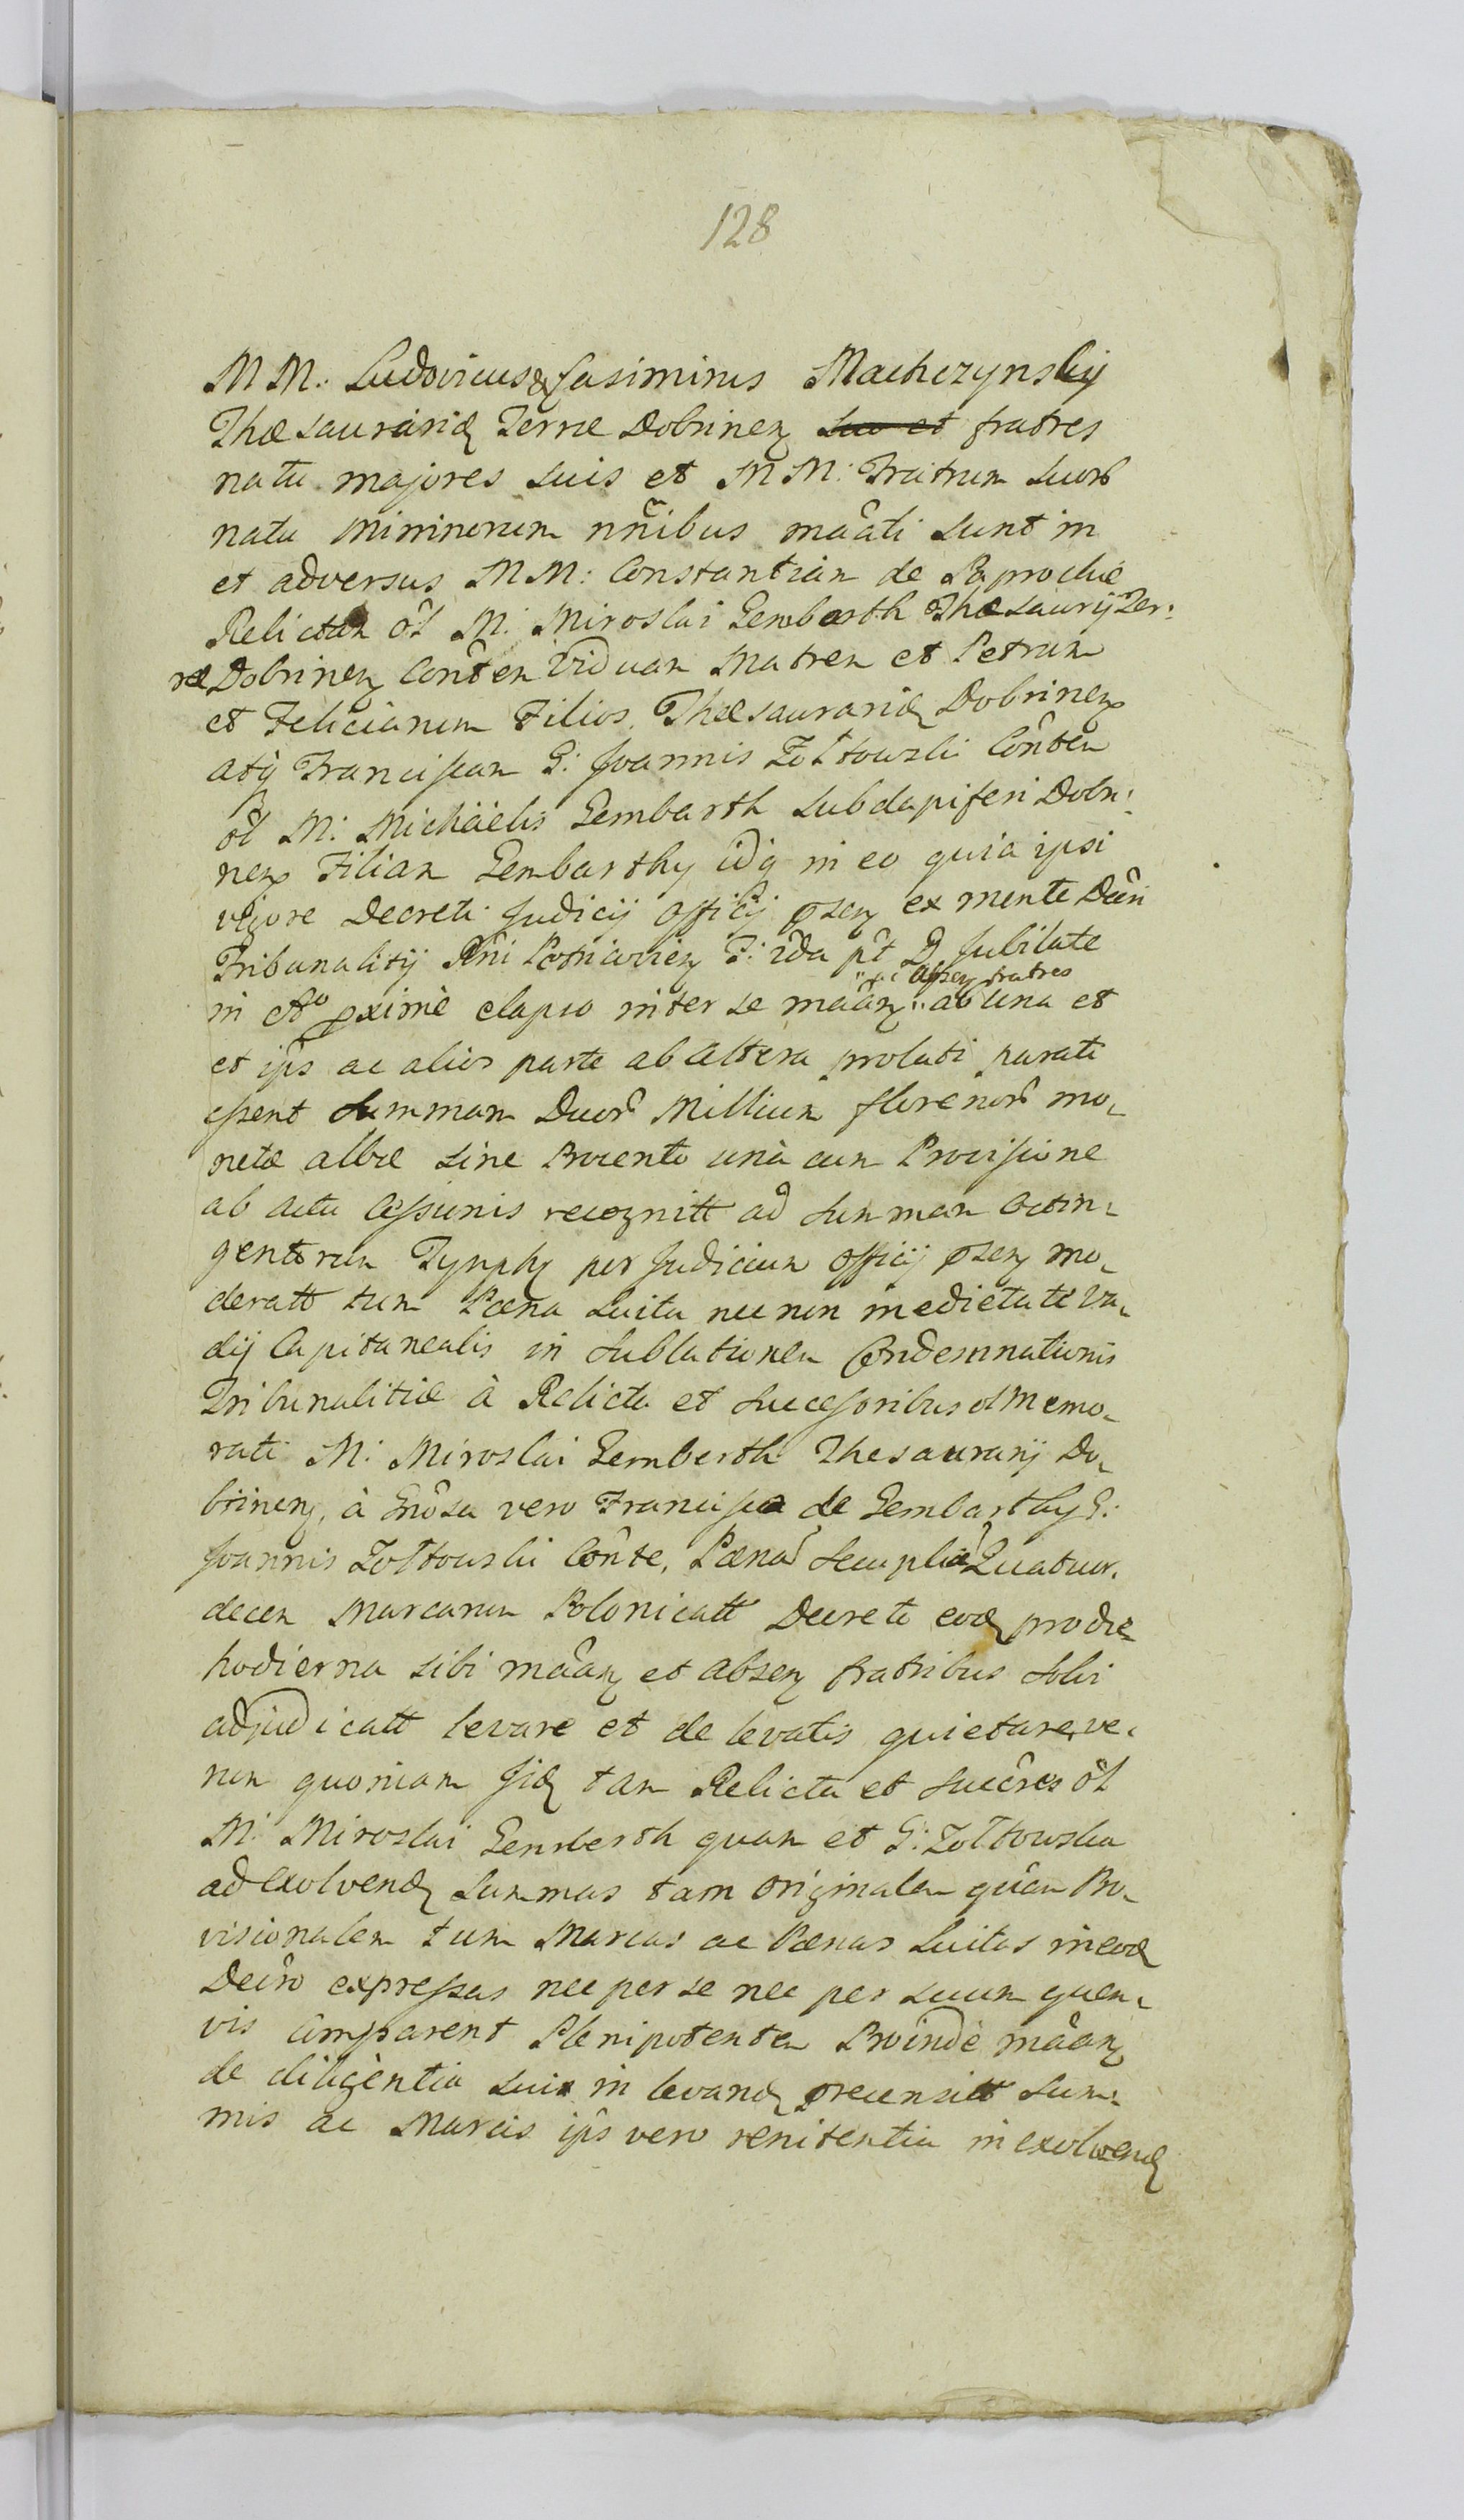 128
MM: Ludovicus & Casimirus Machczynskij
Thæsauraridꝫ Terræ Dobrinenꝫ fratres
natu majores suis et MM: Fratrum suorũ
natu minorum nñibus mâati sunt in
et adversus MM: Constantiam de
Relictam ôl M: Miroslai Gembarth Thæsaurij Ter:
ræ Dobrinenꝫ Conten Viduam Matrem et Petrum
et Felicianum Filios Thæsauraridꝫ Dobrinenꝫ
atq̃ Franciscam G: Joannis Zołtowski Cônten
ôl M: Michäelis Gembarth Subdapiferi Dobri:
nenꝫ Filiam Gembarthy idq̃ in eo quia ipsi
vigore Decreti Judicij Officij ꝑsenꝫ ex mente Dcrî
Tribunalitij Rñi Petricovienꝫ F: 2da pôt D Jubilate
in Aº ꝓximè elapso inter se mâanꝫ absenꝫ fratres ab una et
et ips ac alios parte ab altera prolati parati
essent Summam Duorũ Millium florenorũ mo-
netæ albæ sine Procento unà cum Provisione
ab actu Cessionis recognitt ad Summam Octin-
gentorum Tymphꝫ per Judicium Officij ꝑsenꝫ mo-
deratt tum Pæna Luita necnon medietate Va-
dij Capitanealis in Sublationem Condemnationis
Tribunalitiæ à Relicta et Successoribus ol Memo-
rati M: Miroslai Gemberth Thesaurarij Do-
brinenꝫ, à Gnôsa vero Francisca de Gembarthy G:
Joannis Zołtowski Cônte, Pænaꝫ Quatuor.
decem Marcarum Polonicatt Decreto eodꝫ prodie
hodierna sibi mâanꝫ et absenꝫ fratribus solvi
adjudicatt levare et de levatis quietare, ve-
rum quoniam Jidꝫ tam Relicta et Succres ôl
M: Miroslai Gemberth quam et G: Zołtowska
ad exolvendꝫ Summas tam Originalem quâm Pro-
visionalem tum Marcas ac Pænas Luitas in eodꝫ
Decrô expressas nec per se nec per suum quem-
vis Comparent Plenipotentem Proindè mâanꝫ
de diligentia sui in levandꝫ precensitt Sum-
mis ac Marcis ips vero renitentia in exolvendꝫ